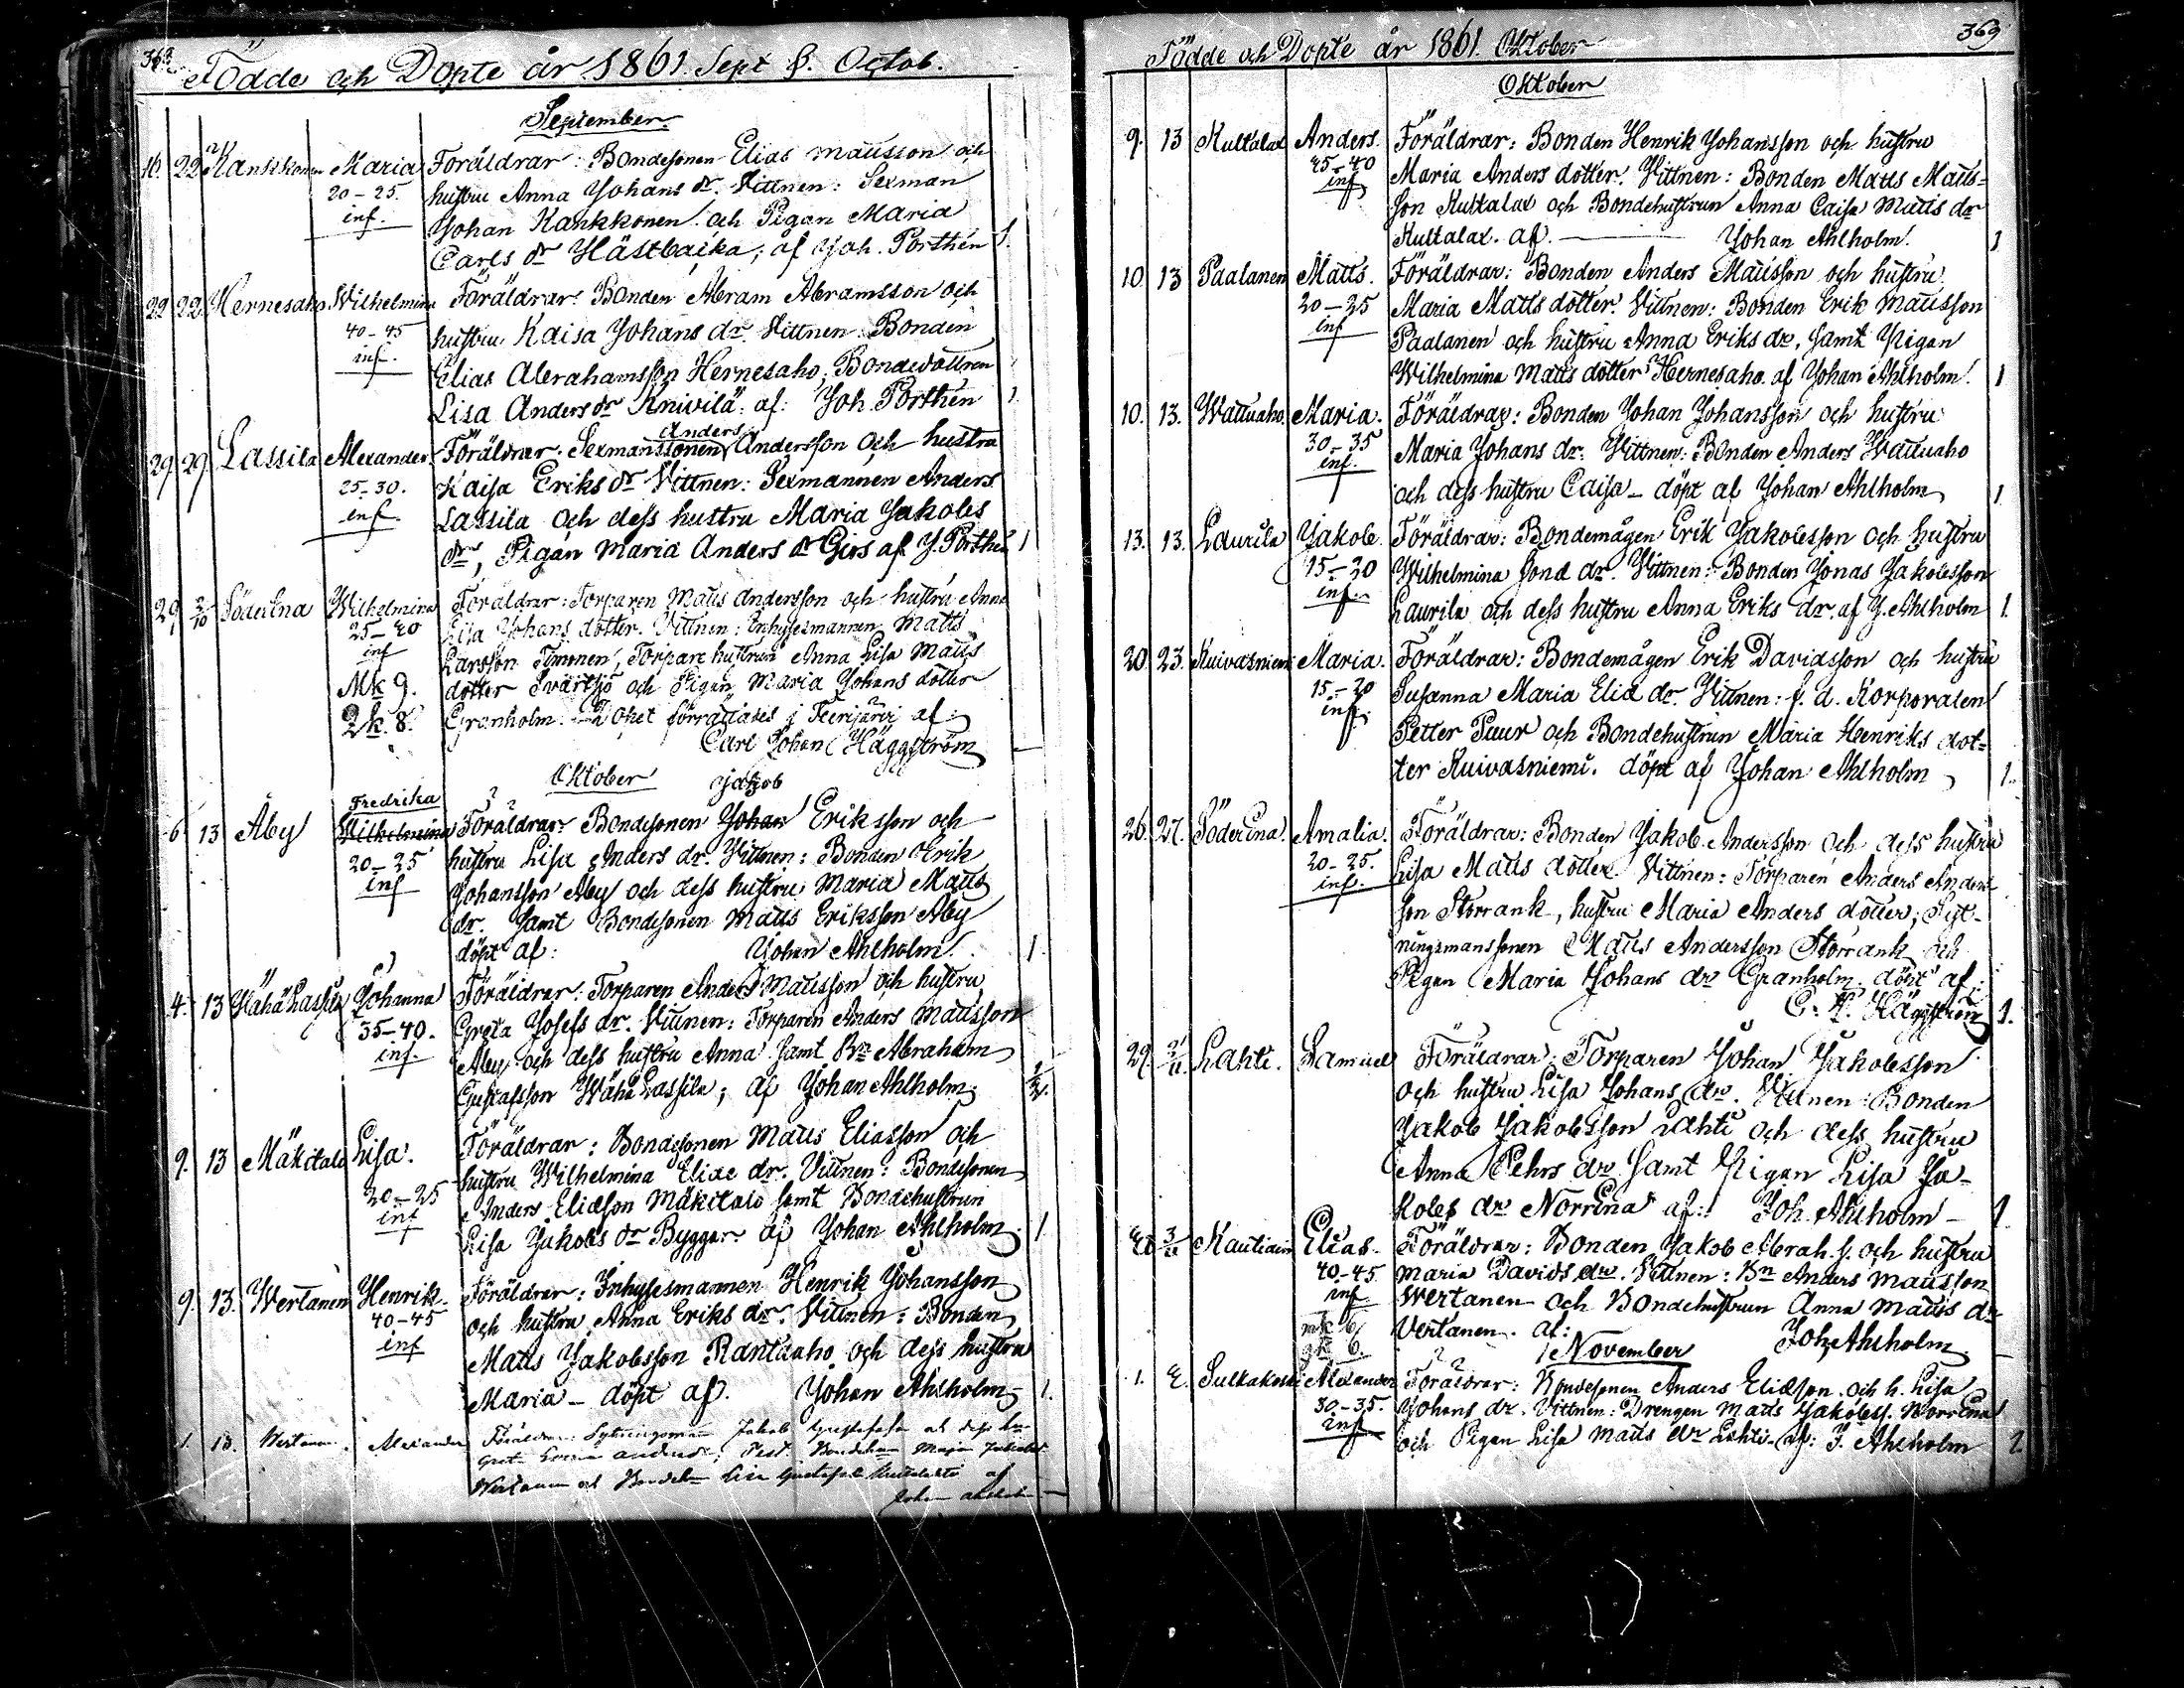 368
Födde och Döpte år 1861. Sept & Octob.
September
16. 22 Kankkonen Maria Föräldrar: Bondesonen Elias Mattsson och
20-25. hustru Anna Johans dr. Vittnen: Sexman
inf. Johan Kankkonen och Pigan Maria
Carls dr Hästbacka, af Joh. Porthén 1.
22 22 Hernesaho Wilhelmina Föräldrar: Bonden Abram Abramsson och
40-45 hustru Kaisa Johans dr. Vittnen: Bonden
inf. Elias Abrahamsson Hernesaho, Bondedottren
Lisa Anders dr Knivilä af: Joh. Porthén 1
Anders
29 29 Lassila Alexander Föräldrar: Sexmanssonen Andersson och hustru
25-30. Kaisa Eriks dr Vittnen: Sexmannen Anders
inf. Lassila och dess hustru Maria Jakobs
dr, Pigan Maria Anders dr Girs af J. Porthén 1
29 2/10 Söderlna Wilhelmina Föräldrar: Torparen Matts Andersson och hustru Anna
25-20 Lisa Johans dotter. Vittnen: Inhysesmannen Matts
inf Larsson Timonen, Torpare hustrun Anna Lisa Matts
Mk 9. dotter Svartsjö och Pigan Maria Johans dotter
Qk. 8. Granholm. Döpet förrättades i Teerijärvi af:
Carl Johan Häggström
Oktober Jakob
Fredrika
6 13 Åby Wilhelmina Föräldrar: Bondesonen Johan Eriksson och
20-25 hustru Lisa Anders dr. Vittnen: Bonden Erik
inf Johansson Åby och dess hustru Maria Matts
dr. samt Bondesonen Matts Eriksson Åby
döpt af: Johan Ahlholm. 1
4. 13 Wähä Lassila Johanna Föräldrar: Torparen Anders Mattsson och hustru
35-40. Greta Josefs dr. Vittnen: Torparen Anders Mattsson
inf. Åby och dess hustru Anna samt Bn Abraham
Gustafsson Wähä Lassila; af Johan Ahlholm.
9. 13 Mäkitalo Lisa. Föräldrar: Bondesonen Matts Eliasson och
20-25 hustru Wilhelmina Eliae dr. Vittnen: Bondesonen
inf Anders Eliasson Mäkitalo samt Bondehustrun
Lisa Jakobs dr Byggar af Johan Ahlholm. 1
9. 13. Wertanen Henrik. Föräldrar: Inhysesmannen Henrik Johansson
40-45 och hustru Anna Eriks dr. Vittnen: Bonden
inf Matts Jakobsson Rantaaho och dess hustru
Maria - döpt af. Johan Ahlholm 1.
1. 13. Wertanen. Alexander Föräldrar: Sytningsman Jakob Gustafsson och dess
Wertanen och Lisa Gustafs af
Johan Ahlholm
369
Födde och Döpte år 1861. Oktober
Oktober
9. 13 Kultalax Anders. Föräldrar: Bonden Henrik Johansson och hustru
45-40 Maria Anders dotter. Vittnen: Bonden Matts Matts=
inf son Kultalax och Bondehustrun Anna Caisa Matts dr
Kultalax. af. Johan Ahlholm. 1
10 13 Paalanen Matts. Föräldrar: Bonden Anders Mattsson och hustru
20-25 Maria Matts dotter. Vittnen: Bonden Erik Mattsson
inf Paalanen och hustru Anna Eriks dr, samt Pigan
Wilhelmina Matts dotter Hernesaho af Johan Ahlholm. 1
10. 13. Wattuaho. Maria. Föräldrar: Bonden Johan Johansson och hustru
30-35 Maria Johans dr. Vittnen: Bonden Anders Wattuaho
inf. och dess hustru Caisa - döpt af Johan Ahlholm 1
13. 13. Laurila Jakob. Föräldrar: Bondemågen Erik Jakobsson och hustru
15-20 Wilhelmina Jona dr. Vittnen: Bonden Jonas Jakobsson
inf. Laurila och dess hustru Anna Eriks dr. af J. Ahlholm 1.
20. 23. Kuivasniemi Maria. Föräldrar: Bondemågen Erik Davidsson och hustru
15-20 Susanna Maria Elia dr. Vittnen: f. d. Korporalen
inf. Petter Puur och Bondehustrun Maria Henriks dot=
ter Kuivasniemi. döpt af Johan Ahlholm 1.
26. 27. Söderlna. Amalia. Föräldrar: Bonden Jakob Andersson och dess hustru
20-25. Lisa Matts dotter. Vittnen: Torparen Anders Anders
inf. son Storrank, hustru Maria Anders dotter, Syt-
ningsmanssonen Matts Andersson Storrank och
Pigan Maria Johans dr Granholm döpt af:
C. J. Häggström 1.
29. 2/11. Lahti. Samuel Föräldrar: Torparen Johan Jakobsson
och hustru Lisa Johans dr. Vittnen: Bonden
Jakob Jakobsson Lahti och dess hustru
Anna Pehrs dr samt Pigan Lisa Ja-
kobs dr Norrena af: Joh. Ahlholm 1
3/11 Kautiain Elias. Föräldrar: Bonden Jakob Abrah. s. och hustru
40-45 Maria Davids dr. Vittnen: Bn Anders Mattsson
inf Wertanen och Bondehustrun Anna Matts dr
mk 6 Vertanen. af: Joh Ahlholm.
qk 6. November
1. 2. Sulkakoski Alexander Föräldrar: Bondesonen Anders Eliasson och h. Lisa
30-35. Johans dr. Vittnen: Drengen Matts Jakobss. Norrena
inf och Pigan Lisa Matts dr Lahti. af: J. Ahlholm 1